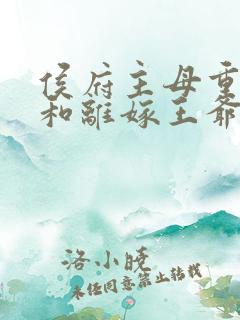 侯府主母重
和離嫁王爺
洛小晚
未经同意禁止转载